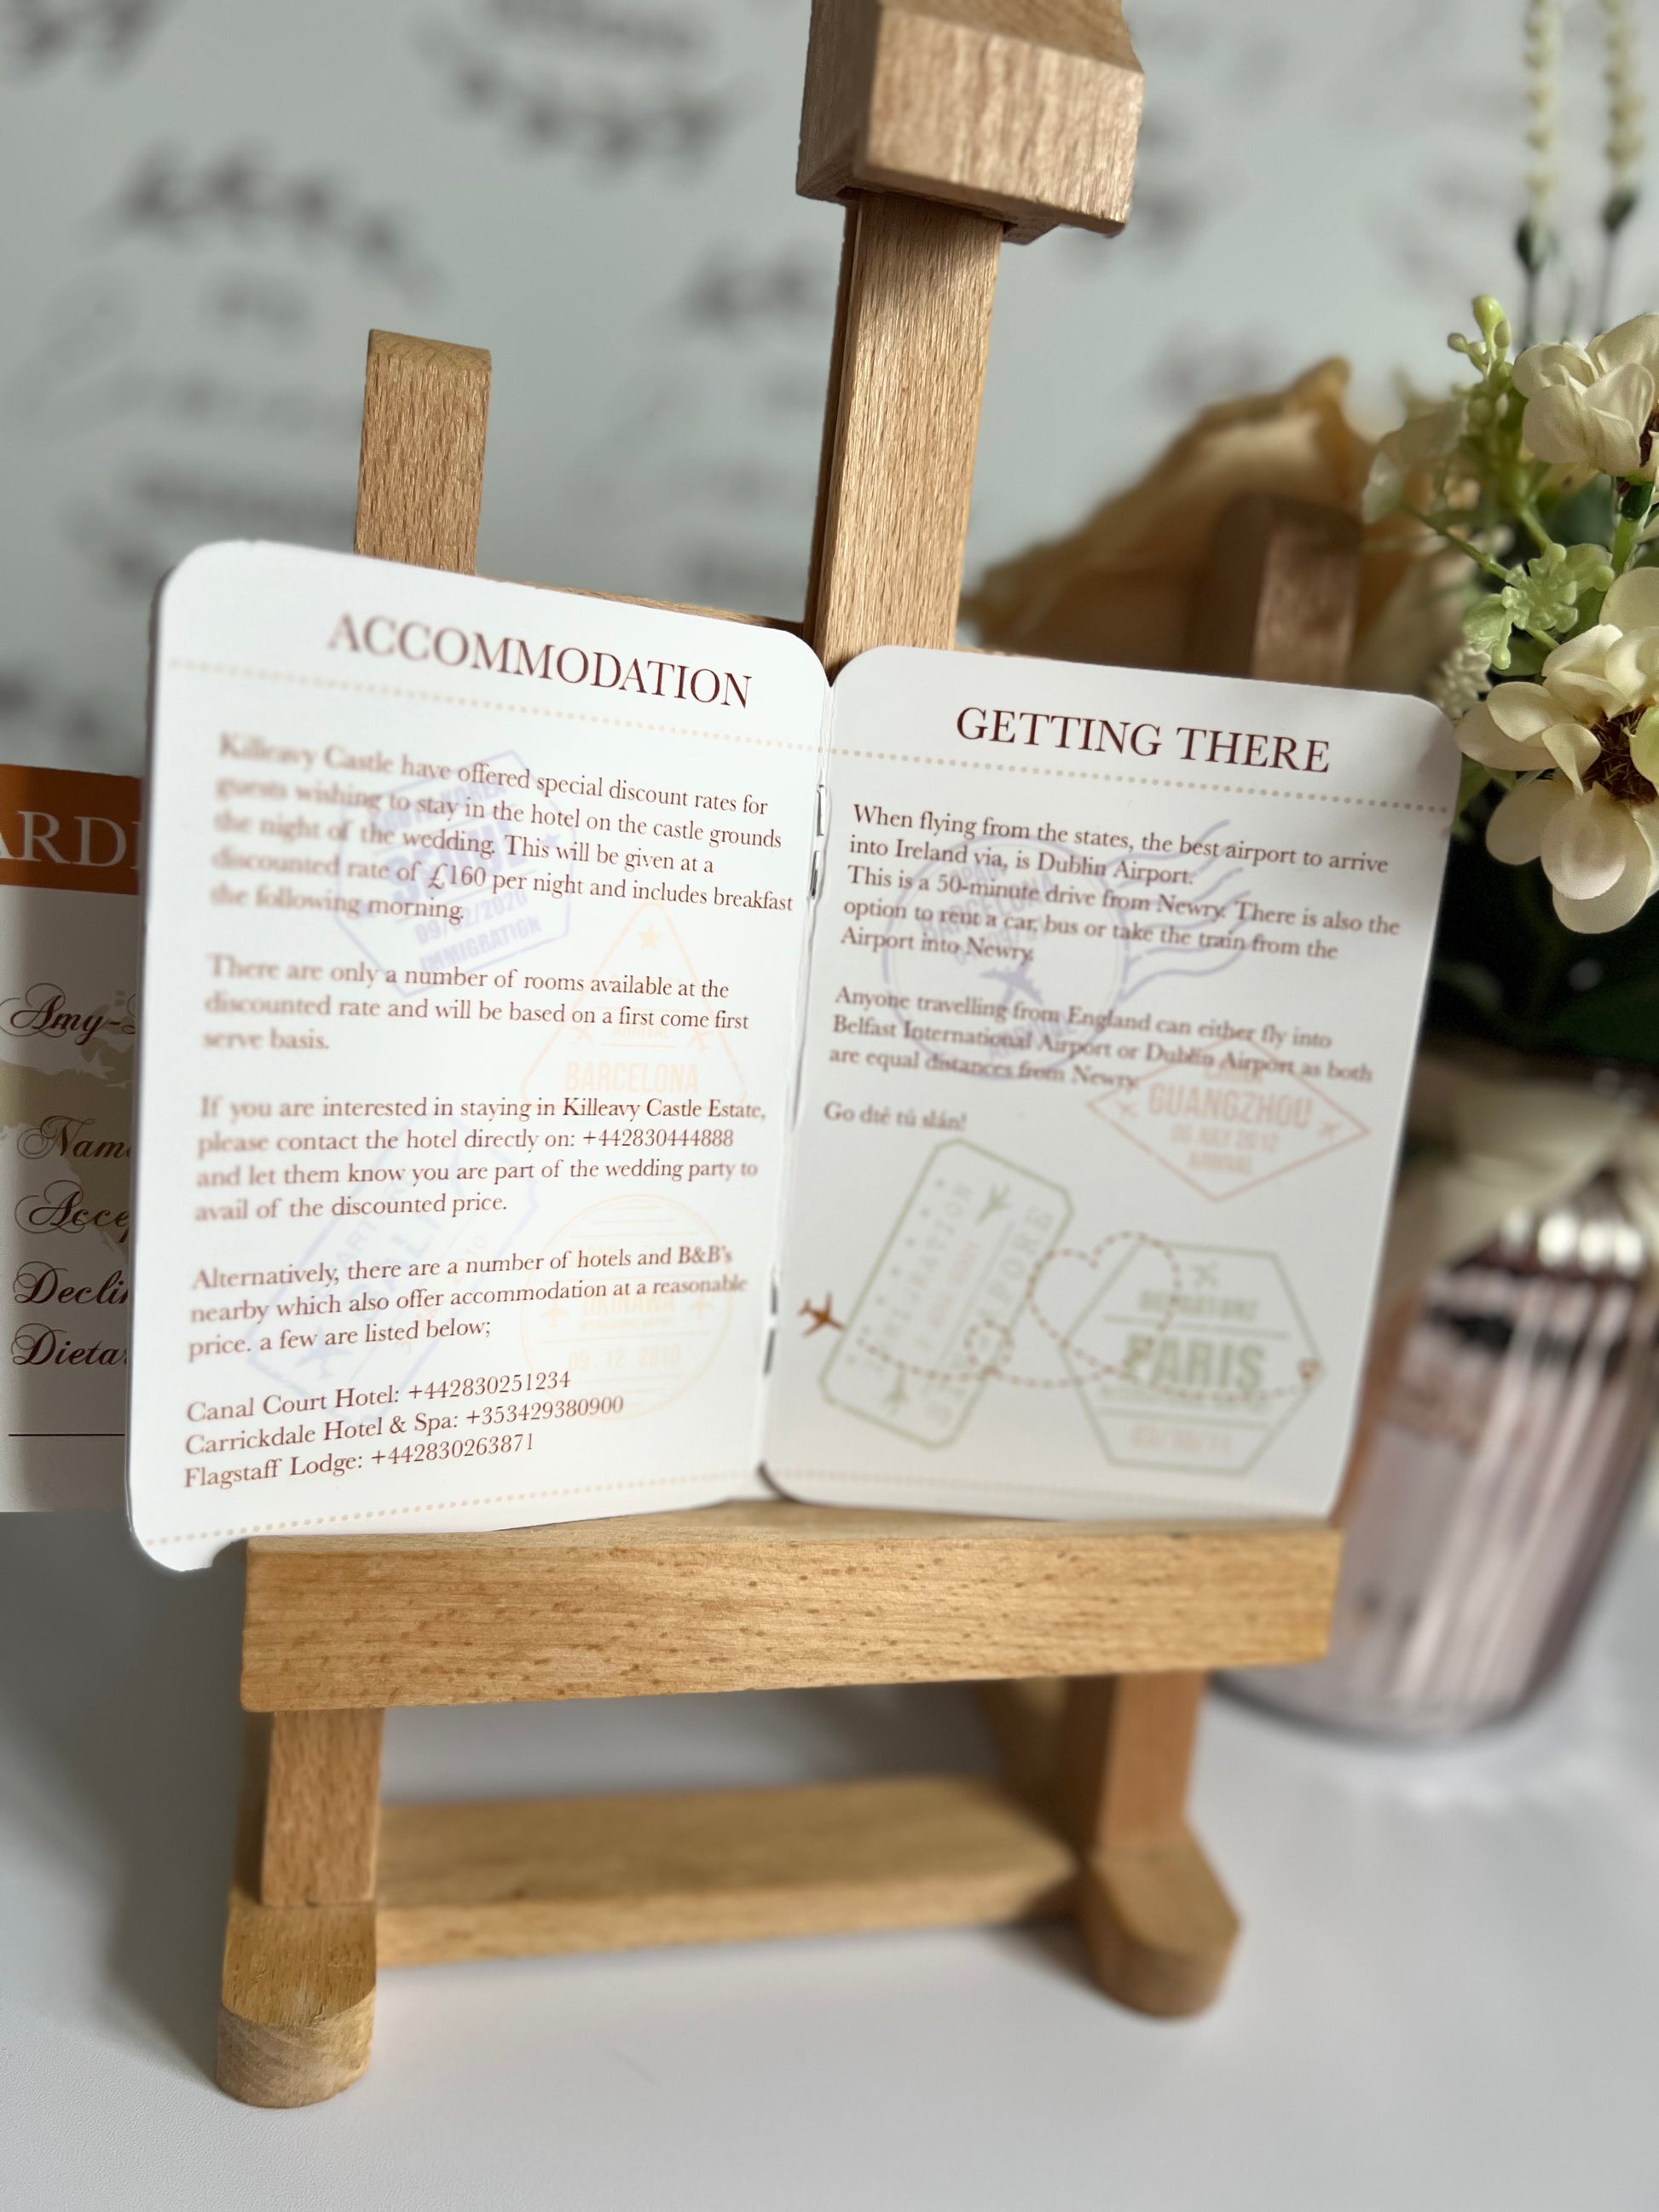 ACCOMMODATION
Killeavy Castle have offered special discount rates for
guests wishing to stay in the hotel on the castle grounds
the night of the wedding. This will be given at a
discounted rate of £160 per night and includes breakfast
the following morning.
There are only a number of rooms available at the
discounted rate and will be based on a first come first
serve basis.
If you are interested in staying in Killeavy Castle Estate,
please contact the hotel directly on: +442830444888
and let them know you are part of the wedding party to
avail of the discounted price.
Alternatively, there are a number of hotels and B&B's
nearby which also offer accommodation at a reasonable
price. a few are listed below;
Canal Court Hotel: +442830251234
Carrickdale Hotel & Spa: +353429380900
Flagstaff Lodge: +442830263871
09/02/2020
IMMIGRATION
ARRIVAL
BARCELONA
OKINAWA
09.12.2010
GETTING THERE
When flying from the states, the best airport to arrive
into Ireland via, is Dublin Airport.
This is a 50-minute drive from Newry. There is also the
option to rent a car, bus or take the train from the
Airport into Newry.
Anyone travelling from England can either fly into
Belfast International Airport or Dublin Airport as both
are equal distances from Newry.
Go dté tú slán!
GUANGZHOU
ARRIVAL
SINGAPORE
DEPARTURE
PARIS
Amy-